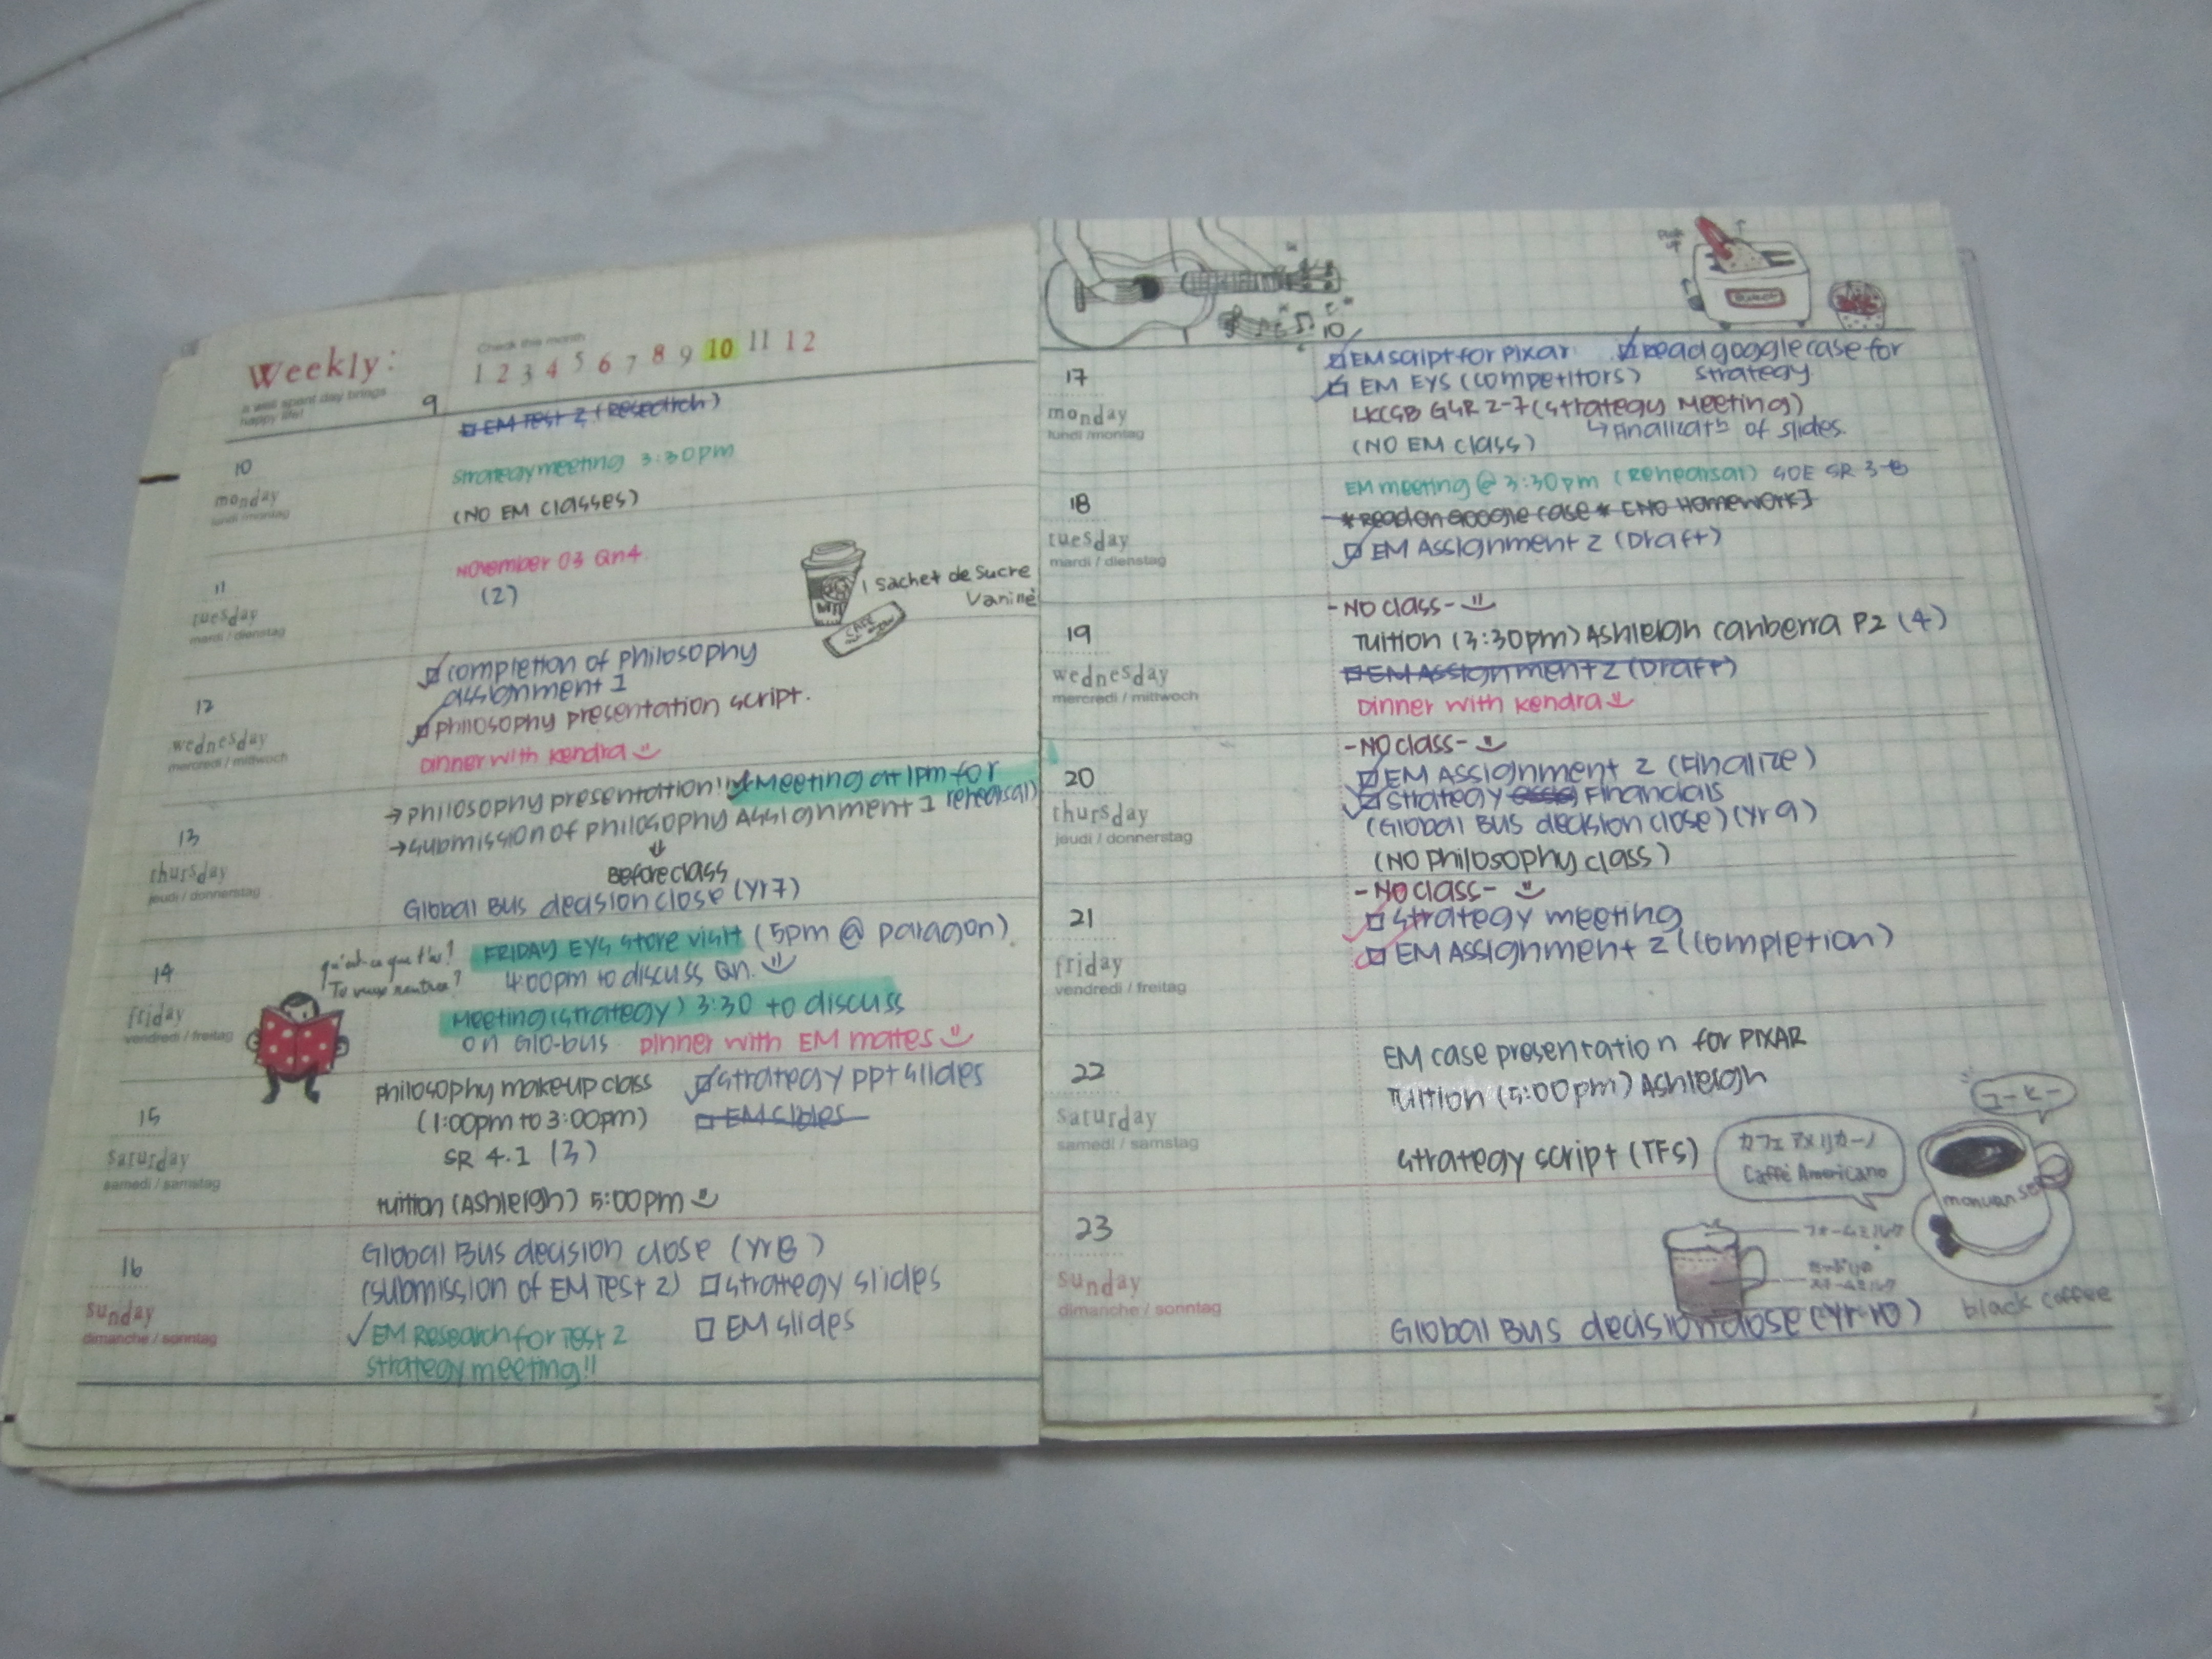 Weekly:
a well spent day brings
happy life!
Check this month
1 2 3 4 5 6 7 8 9 10 11 12
9
☐ EM Test 2 (Research)
10
monday
lundi / montag
strategy meeting 3:30pm
(NO EM classes)
11
tuesday
mardi / dienstag
November 03 Qn4
(2)
1 sachet de sucre
CAFE
12
wednesday
mercredi / mittwoch
☑ completion of philosophy
assignment 1
☑ philosophy presentation script.
Dinner with Kendra
13
thursday
jeudi / donnerstag
→ philosophy presentation! (Meeting at 1pm for
rehearsal)
→ submission of philosophy Assignment 1
Before class
Global Bus decision close (Yr7)
14
friday
vendredi / freitag
FRIDAY EYS store visit (5pm @ paragon)
4:00pm to discuss Qn.
Meeting (strategy) 3:30 to discuss
on Glo-bus. Dinner with EM mates
15
saturday
samedi / samstag
philosophy makeup class
(1:00pm to 3:00pm)
SR 4.1 (3)
☑ strategy ppt slides
☐ EM slides
Tuition (Ashleigh) 5:00pm
16
sunday
dimanche / sonntag
Global Bus decision close (Yr8)
(submission of EM Test 2) ☐ strategy slides
✓ EM Research for Test 2
☐ EM slides
strategy meeting!!
10
17
monday
lundi / montag
☑ EM script for Pixar
☑ Read goggle case for
strategy
☑ EM EYS (competitors)
LKCSB GSR 2-7 (strategy Meeting)
↳ of slides.
(NO EM class)
18
tuesday
mardi / dienstag
EM meeting @ 3:30pm (Rehearsal) SOE SR 3-8
* Read on Google case * [NO Homework]
☑ EM Assignment 2 (Draft)
19
wednesday
mercredi / mittwoch
- NO class -
Tuition (3:30pm) Ashleigh canberra P2 (4)
☐ EM Assignment 2 (Draft)
Dinner with kendra
20
thursday
jeudi / donnerstag
- NO class -
☑ EM Assignment 2 (Finalize)
☑ strategy Financials
(Global Bus decision close) (Yr 9)
(NO philosophy class)
21
friday
vendredi / freitag
- NO class -
☑ strategy meeting
☑ EM Assignment 2 (completion)
22
saturday
samedi / samstag
EM case presentation for PIXAR
Tuition (5:00pm) Ashleigh
strategy script (TFS)
カフェアメリカーノ
Caffé Americano
コーヒー
black coffee
23
sunday
dimanche / sonntag
Global Bus decision close (Yr 10)